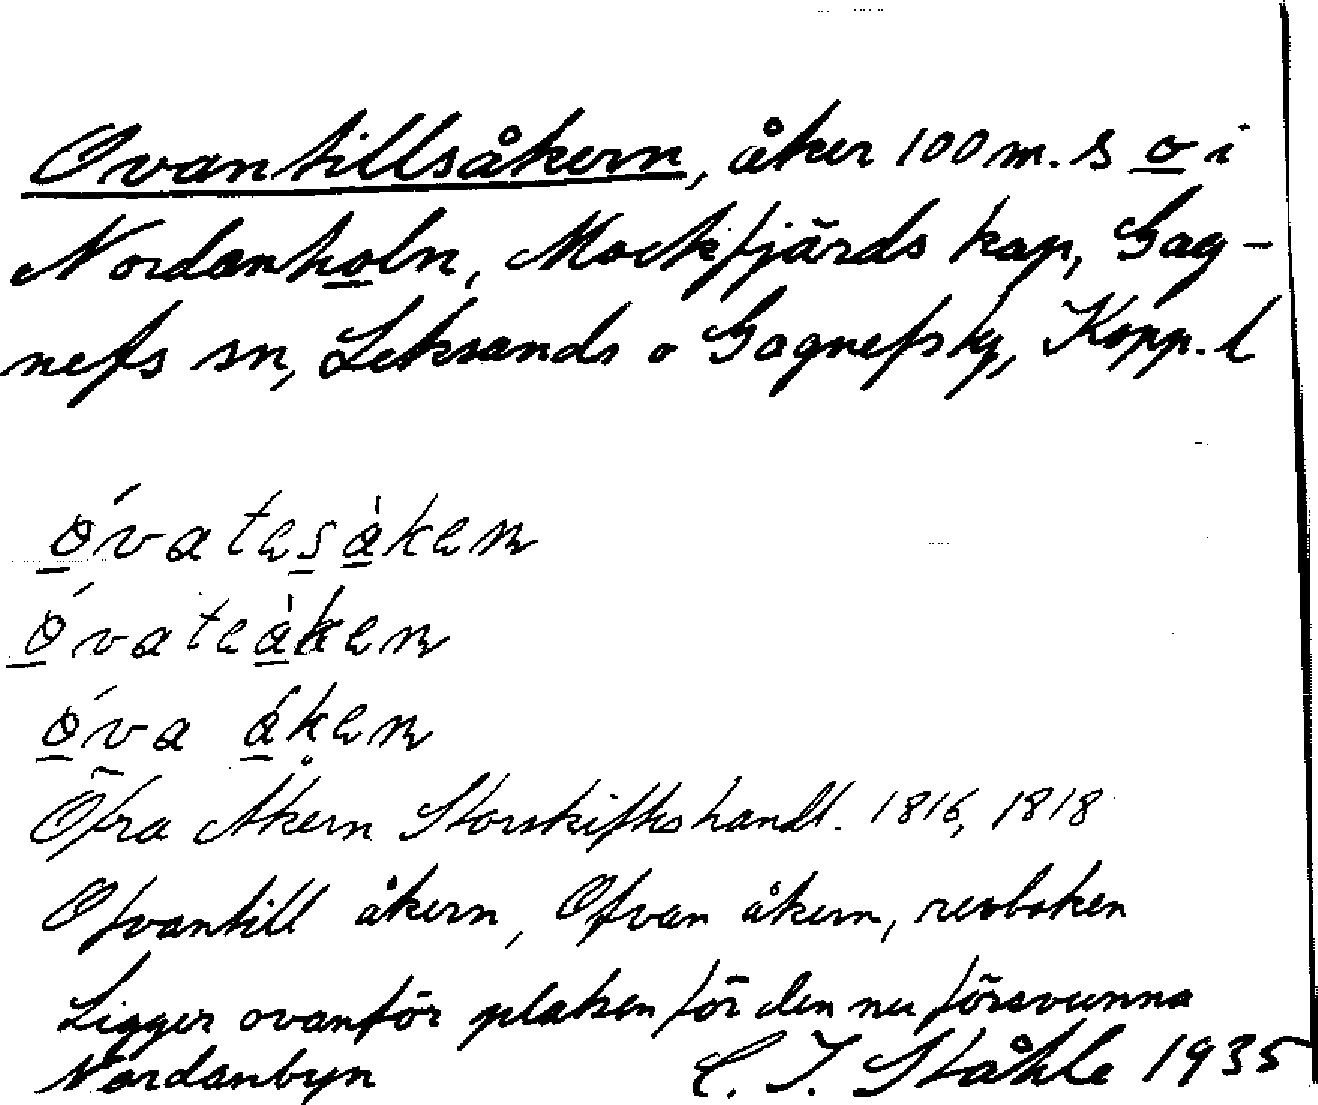 Ovantillsåkern, åker 100 m. S o i
Nordanholn, Mockfjärds kap, Gag-
nefs sn, Leksands o Gagnefs tg, Kopp. l
óvatesåken
óvateåken
óva åken
Öfra Åkern Storskifteshandl. 1816, 1818
Ofvantill åkern, Ofvan åkern, revboken
Ligger ovanför platsen för den nu försvunna
Nordanbyn C. I. Ståhle 1935